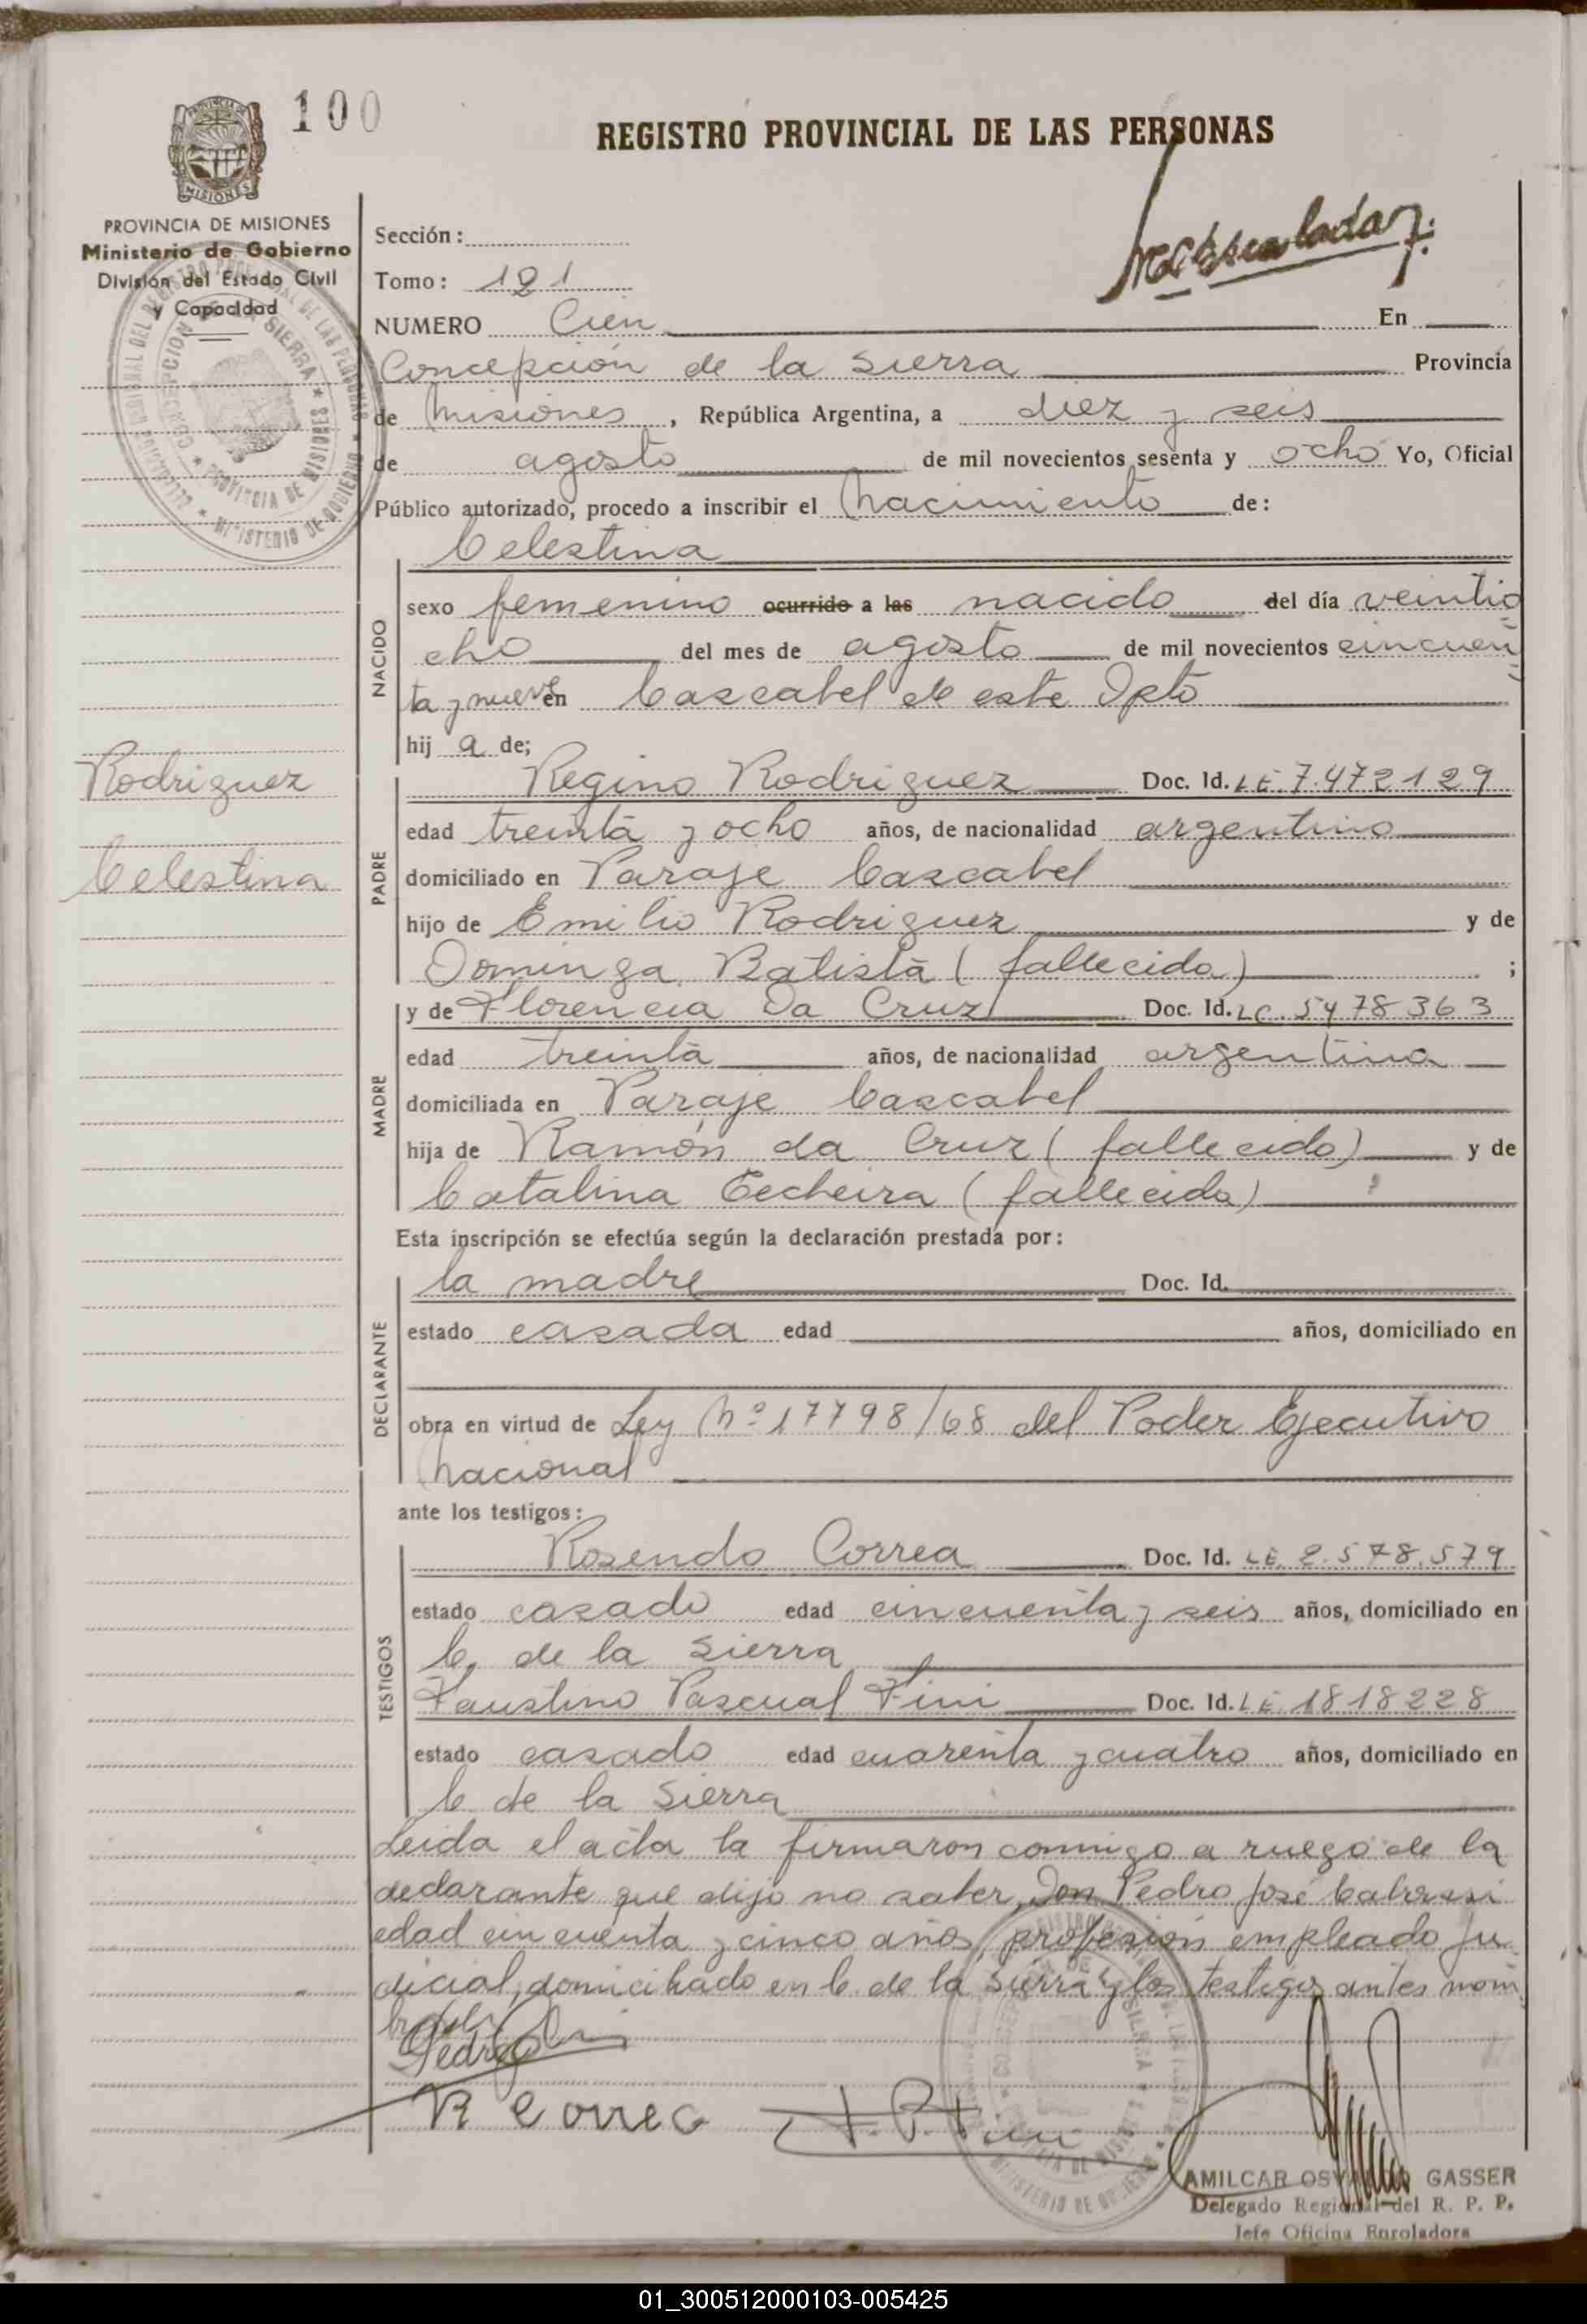 100
REGISTRO PROVINCIAL DE LAS PERSONAS
MISIONES
PROVINCIA DE MISIONES
Ministerio de Gobierno
División del Estado Civil
y Capacidad
Sección:
Tomo: 121
NUMERO Cien En
Concepción de la Sierra Provincia
de Misiones, República Argentina, a diez y seis
de agosto de mil novecientos sesenta y ocho Yo, Oficial
Público autorizado, procedo a inscribir el Nacimiento de:
Celestina
NACIDO
sexo femenino ocurrido a las nacido del día veintio
cho del mes de agosto de mil novecientos cincuen
ta y nueve en Cascabel de este Dpto
hij a de;
Rodriguez
Celestina
PADRE
Regino Rodriguez Doc. Id. LE. 7.472129
edad treinta y ocho años, de nacionalidad argentino
domiciliado en Paraje Cascabel
hijo de Emilio Rodriguez y de
Dominga Batista (fallecida) ;
MADRE
y de Florencia Da Cruz Doc. Id. LC. 5478363
edad treinta años, de nacionalidad argentina
domiciliada en Paraje Cascabel
hija de Ramón da Cruz (fallecido) y de
Catalina Cecheira (fallecida)
Esta inscripción se efectúa según la declaración prestada por:
DECLARANTE
la madre Doc. Id.
estado casada edad años, domiciliado en
obra en virtud de Ley Nº 17798/68 del Poder Ejecutivo
Nacional
ante los testigos:
TESTIGOS
Rosendo Correa Doc. Id. LE. 2.578.579
estado casado edad cincuenta y seis años, domiciliado en
C. de la Sierra
Faustino Pascual Fini Doc. Id. LE. 1818228
estado casado edad cuarenta y cuatro años, domiciliado en
C. de la Sierra
Leida el acta la firmaron conmigo a ruego de la
declarante que dijo no saber, Don Pedro José
edad cincuenta y cinco años, profesión empleado Ju
dicial, domiciliado en C. de la Sierra y los testigos antes nom
brados
Pedro
R Correa F. P. Fini
AMILCAR OSVALDO GASSER
Delegado Regional del R. P. P.
Jefe Oficina Enroladora
01_300512000103-005425